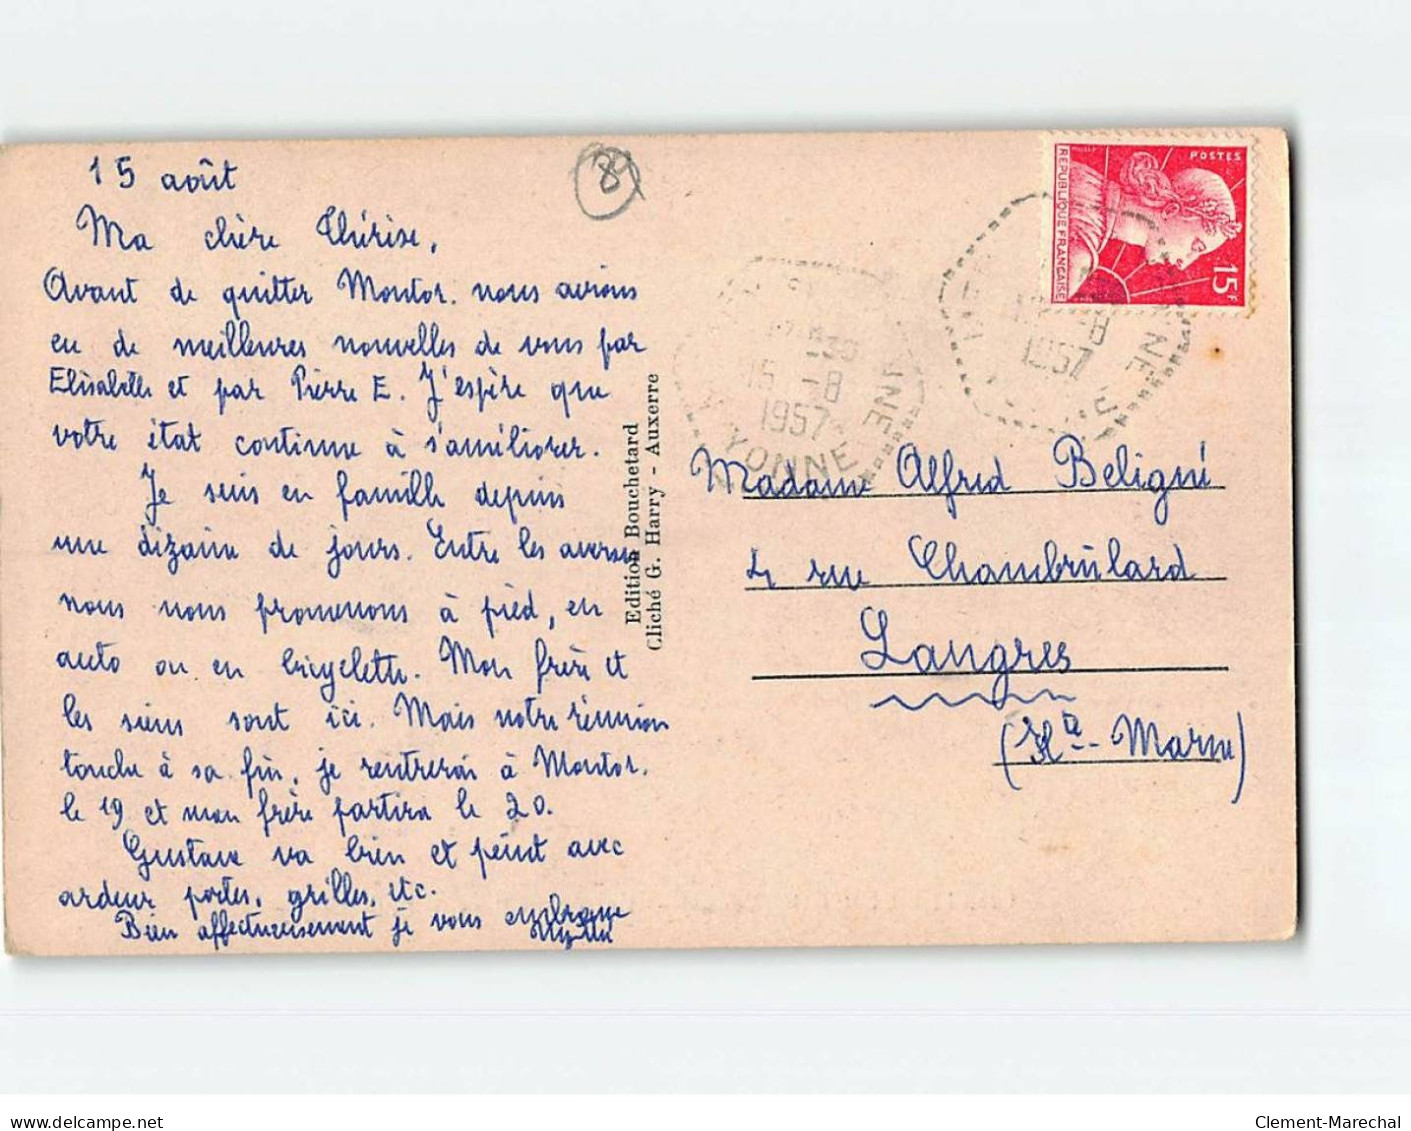 15 août
Ma chère Thérèse,
Avant de quitter Montor. nous avions
eu de meilleures nouvelles de vous par
Elisabeth et par Pierre E. J'espère que
votre état continue à s'améliorer.
Je suis en famille depuis
une dizaine de jours. Entre les averses
nous nous promenons à pied, en
auto ou en bicyclette. Mon frère et
les siens sont ici. Mais notre réunion
touche à sa fin, je rentrerai à Montor.
le 19 et mon frère partira le 20.
Gustave va bien et peint avec
ardeur portes, grilles, etc.
Bien affectueusement je vous embrasse
8
Edition Bouchetard
Cliché G. Harry - Auxerre
POSTES
REPUBLIQUE FRANÇAISE
15F
15 -8
1957
YONNE
-8
1957
YONNE
Madame Alfred Beligné
4 rue Chambrûlard
Langres
(Hte-Marne)
delcampe.net
Clement-Marechal